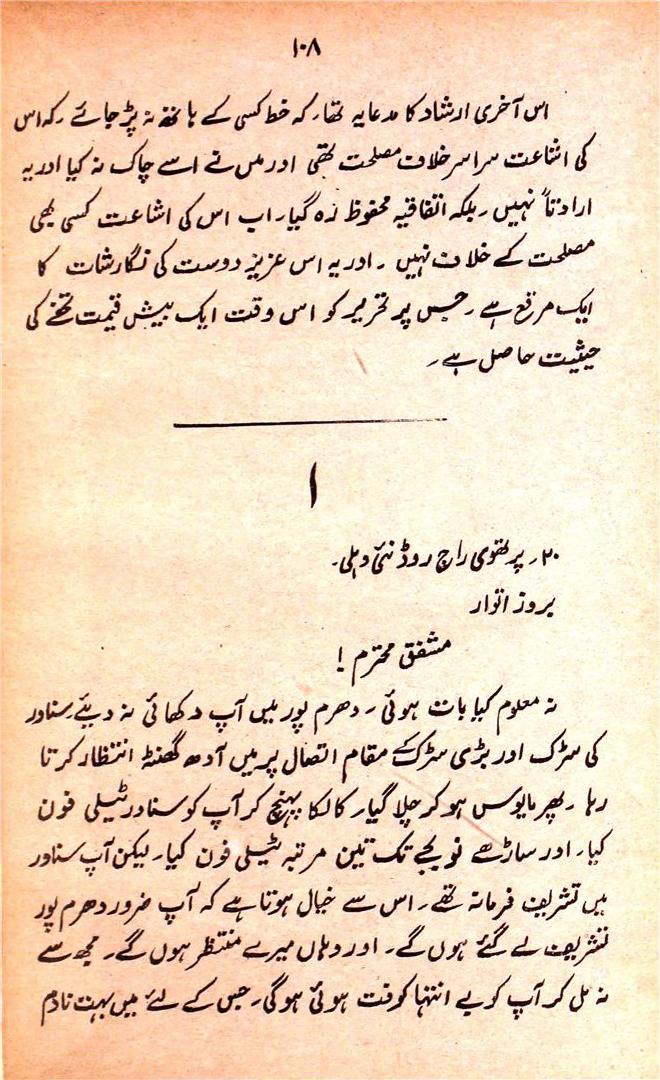 ۱۰۸
اس آخری ارشاد کا مدعا یہ تھا، کہ خط کسی کے ہاتھ نہ پڑ جائے ۔ کہ اس
کی اشاعت سراسر خلاف مصلحت تھی اور میں نے اسے چاک نہ کیا اور یہ
ارادتاً نہیں ۔ بلکہ اتفاقیہ محفوظ رہ گیا۔ اب اس کی اشاعت کسی بھی
مصلحت کے خلاف نہیں ۔ اور یہ اس عزیز دوست کی نگارشات کا
ایک مرقع ہے ۔ جس پر تحریر کو اس وقت ایک بیش قیمت تحفے کی
حیثیت حاصل ہے ۔
۱
۲۰ ۔ پرتھوی راج روڈ نئی دہلی ۔
بروز اتوار
مشفق محترم !
نہ معلوم کیا بات ہوئی ۔ دھرم پور میں آپ دکھائی نہ دیئے۔ سناور
کی سڑک اور بڑی سڑک کے مقام اتصال پر میں آدھ گھنٹہ انتظار کرتا
رہا ۔ پھر مایوس ہو کر چلا گیا۔ کالکا پہنچ کر آپ کو سناور ٹیلی فون
کیا۔ اور ساڑھے نو بجے تک تین مرتبہ ٹیلی فون کیا۔ لیکن آپ سناور
میں تشریف فرما نہ تھے ۔ اس سے خیال ہوتا ہے کہ آپ ضرور دھرم پور
تشریف لے گئے ہوں گے۔ اور وہاں میرے منتظر ہوں گے۔ مجھ سے
نہ مل کر آپ کو بے انتہا کوفت ہوئی ہوگی۔ جس کے لئے میں بہت نادم